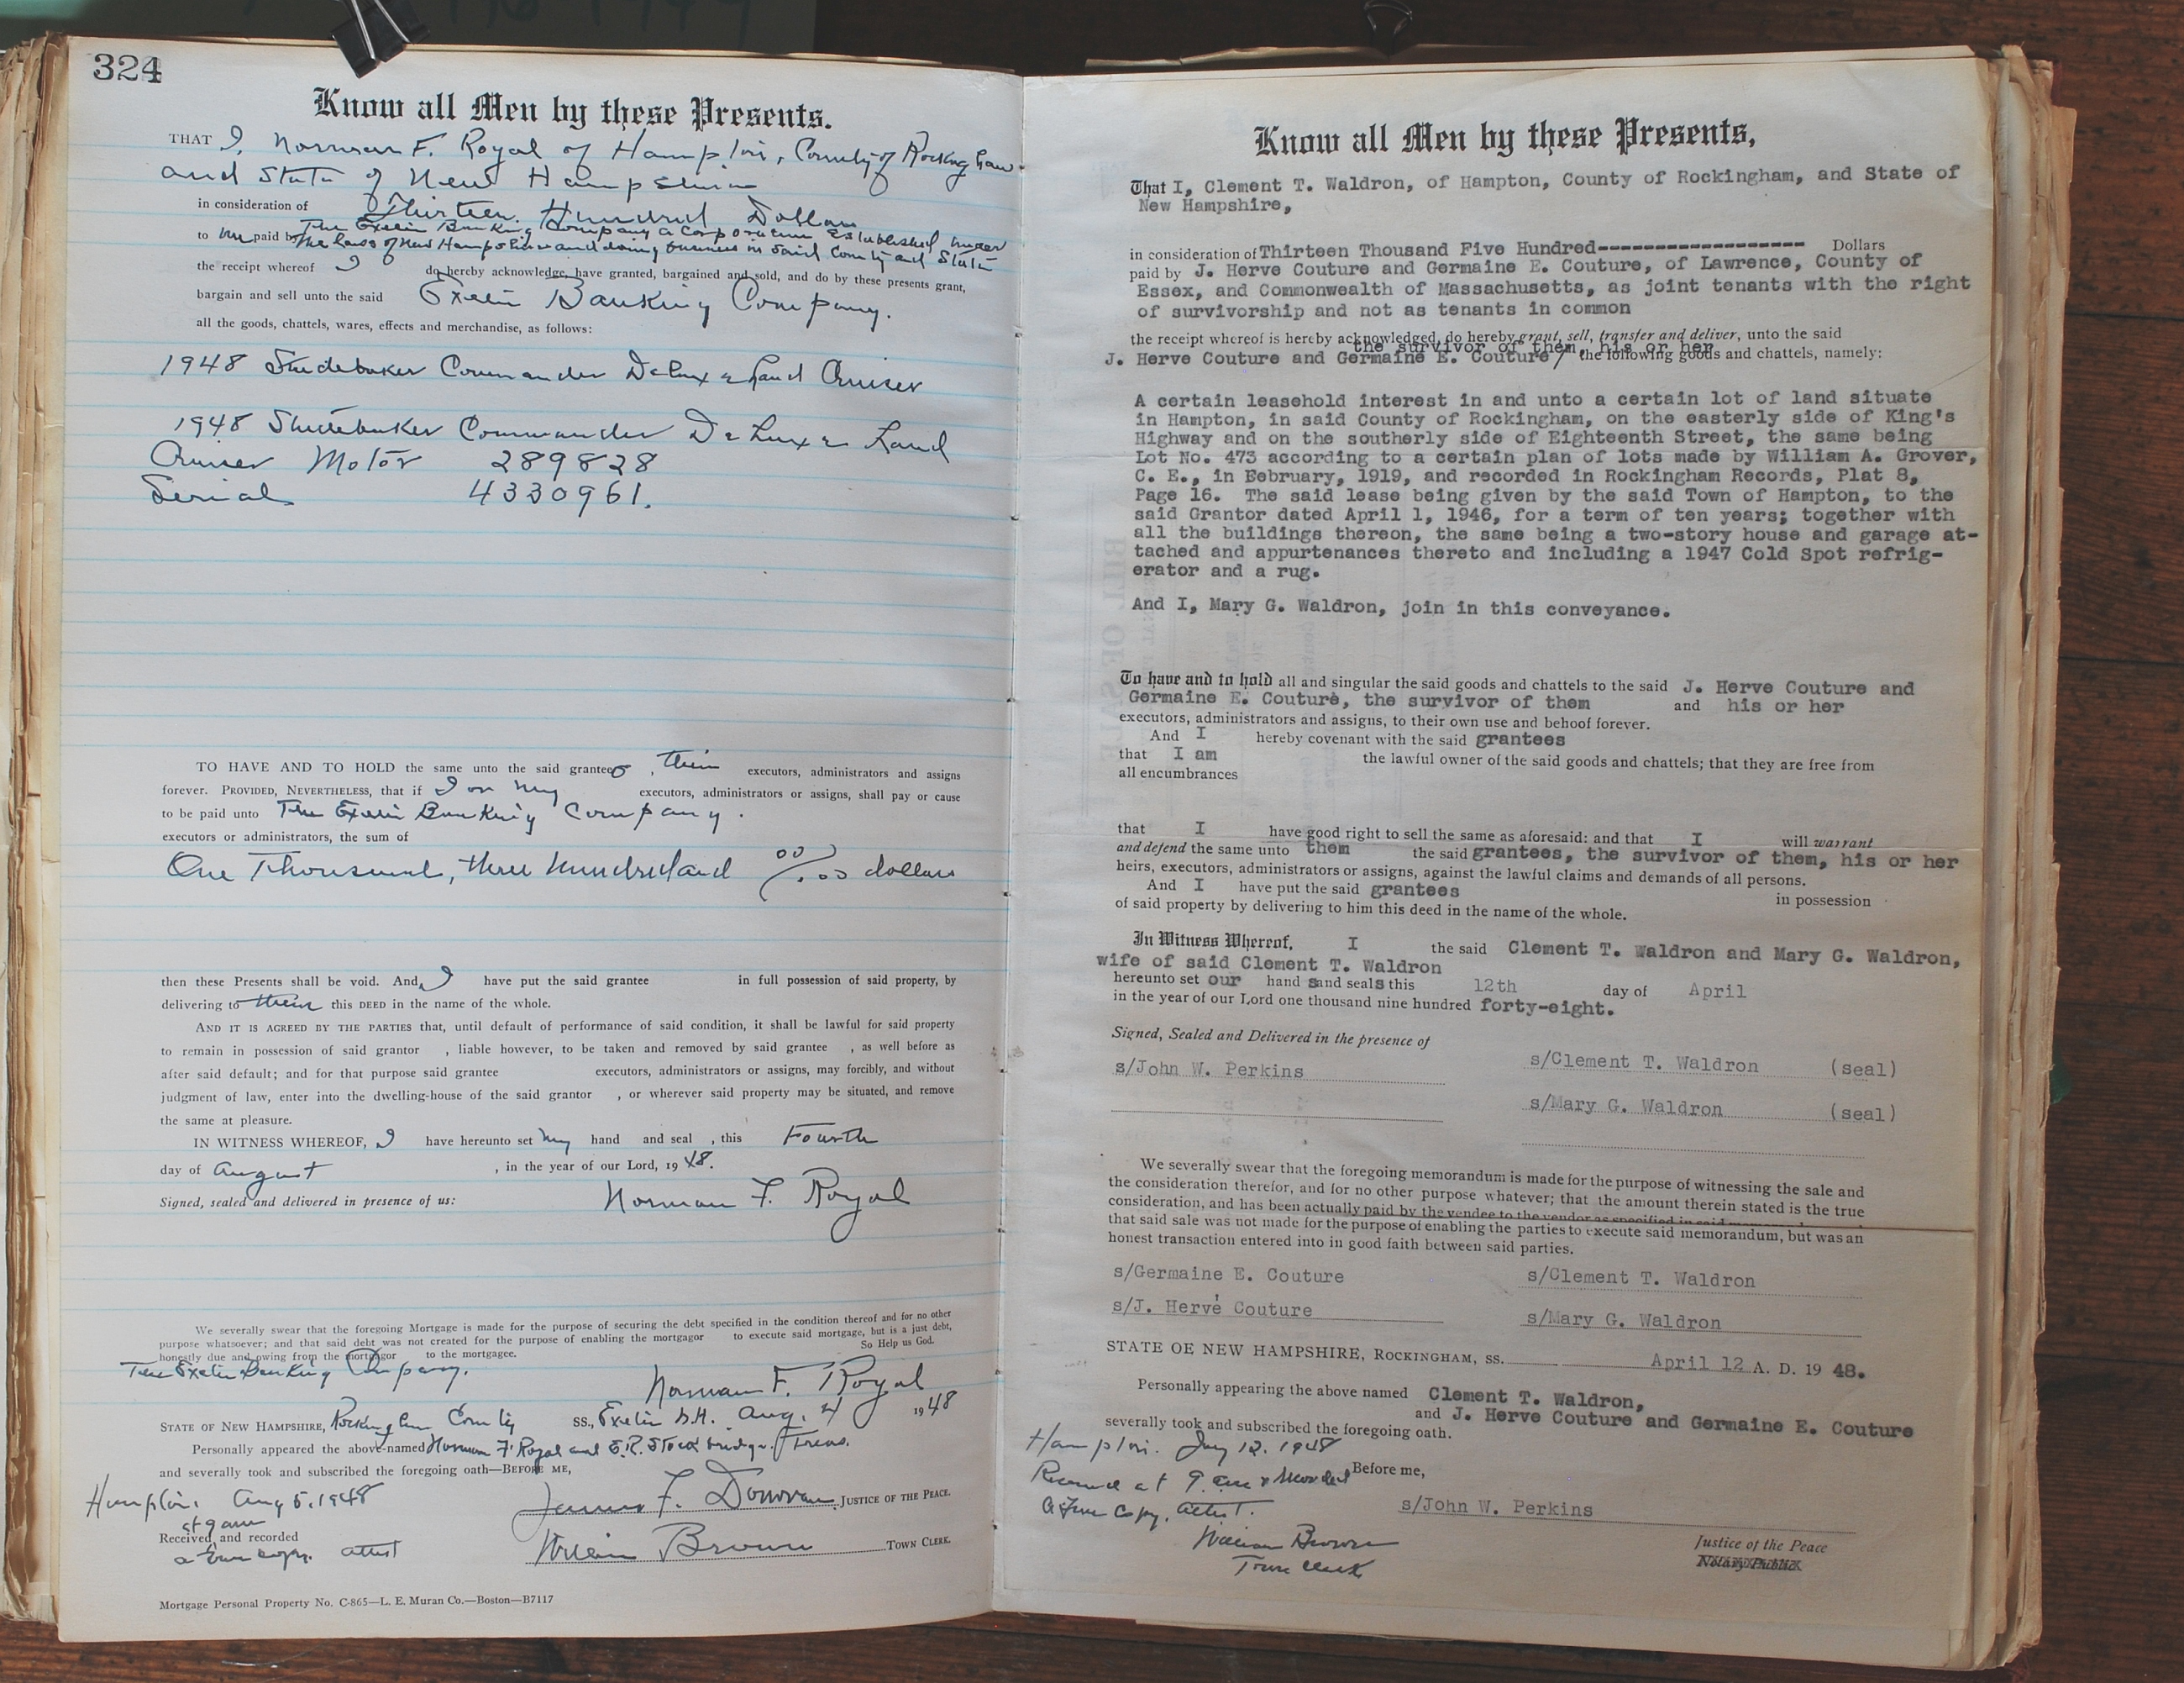 324
Know all Men by these Presents.
THAT I, Norman F. Royal of Hampton, County of Rockingham
and State of New Hampshire
in consideration of Thirteen Hundred Dollars
to me paid by The Exeter Banking Company a Corporation established under
the laws of New Hampshire and doing business in said County and State
the receipt whereof I do hereby acknowledge, have granted, bargained and sold, and do by these presents grant,
bargain and sell unto the said Exeter Banking Company.
all the goods, chattels, wares, effects and merchandise, as follows:
1948 Studebaker Commander DeLuxe Land Cruiser
1948 Studebaker Commander DeLuxe Land
Cruiser Motor 289828
Serial 4330961.
TO HAVE AND TO HOLD the same unto the said grantees, their executors, administrators and assigns
forever. PROVIDED, NEVERTHELESS, that if I or my executors, administrators or assigns, shall pay or cause
to be paid unto The Exeter Banking Company.
executors or administrators, the sum of
One Thousand, three hundred and 00/.00 dollars
then these Presents shall be void. And I have put the said grantee in full possession of said property, by
delivering to them this DEED in the name of the whole.
AND IT IS AGREED BY THE PARTIES that, until default of performance of said condition, it shall be lawful for said property
to remain in possession of said grantor , liable however, to be taken and removed by said grantee , as well before as
after said default; and for that purpose said grantee executors, administrators or assigns, may forcibly, and without
judgment of law, enter into the dwelling-house of the said grantor , or wherever said property may be situated, and remove
the same at pleasure.
IN WITNESS WHEREOF, I have hereunto set my hand and seal , this Fourth
day of August , in the year of our Lord, 19 48.
Signed, sealed and delivered in presence of us: Norman F. Royal
We severally swear that the foregoing Mortgage is made for the purpose of securing the debt specified in the condition thereof and for no other
purpose whatsoever; and that said debt was not created for the purpose of enabling the mortgagor to execute said mortgage, but is a just debt,
honestly due and owing from the mortgagor to the mortgagee. So Help us God.
The Exeter Banking Company.
Norman F. Royal
STATE OF NEW HAMPSHIRE, Rockingham County SS., Exeter N.H. Aug. 4 1948
Personally appeared the above-named Norman F Royal and E.R. Stockbridge, Treas.
and severally took and subscribed the foregoing oath—BEFORE ME,
Hampton Aug 5, 1948 James F. Donovan JUSTICE OF THE PEACE.
at 9 am
Received and recorded
a true copy. attest William Brown TOWN CLERK.
Mortgage Personal Property No. C-865—L. E. Muran Co.—Boston—B7117
Know all Men by these Presents,
That I, Clement T. Waldron, of Hampton, County of Rockingham, and State of
New Hampshire,
in consideration of Thirteen Thousand Five Hundred------------------ Dollars
paid by J. Herve Couture and Germaine E. Couture, of Lawrence, County of
Essex, and Commonwealth of Massachusetts, as joint tenants with the right
of survivorship and not as tenants in common
the receipt whereof is hereby acknowledged, do hereby grant, sell, transfer and deliver, unto the said
the survivor of them, his or her
J. Herve Couture and Germaine E. Couture/ the following goods and chattels, namely:
A certain leasehold interest in and unto a certain lot of land situate
in Hampton, in said County of Rockingham, on the easterly side of King's
Highway and on the southerly side of Eighteenth Street, the same being
Lot No. 473 according to a certain plan of lots made by William A. Grover,
C. E., in February, 1919, and recorded in Rockingham Records, Plat 8,
Page 16. The said lease being given by the said Town of Hampton, to the
said Grantor dated April 1, 1946, for a term of ten years; together with
all the buildings thereon, the same being a two-story house and garage at-
tached and appurtenances thereto and including a 1947 Cold Spot refrig-
erator and a rug.
And I, Mary G. Waldron, join in this conveyance.
To have and to hold all and singular the said goods and chattels to the said J. Herve Couture and
Germaine E. Couture, the survivor of them and his or her
executors, administrators and assigns, to their own use and behoof forever.
And I hereby covenant with the said grantees
that I am the lawful owner of the said goods and chattels; that they are free from
all encumbrances
that I have good right to sell the same as aforesaid: and that I will warrant
and defend the same unto them the said grantees, the survivor of them, his or her
heirs, executors, administrators or assigns, against the lawful claims and demands of all persons.
And I have put the said grantees in possession
of said property by delivering to him this deed in the name of the whole.
In Witness Whereof, I the said Clement T. Waldron and Mary G. Waldron,
wife of said Clement T. Waldron
hereunto set our hand sand seals this 12th day of April
in the year of our Lord one thousand nine hundred forty-eight.
Signed, Sealed and Delivered in the presence of
s/John W. Perkins s/Clement T. Waldron (seal)
s/Mary G. Waldron (seal)
We severally swear that the foregoing memorandum is made for the purpose of witnessing the sale and
the consideration therefor, and for no other purpose whatever; that the amount therein stated is the true
consideration, and has been actually paid by the vendee to the vendor as specified in said
that said sale was not made for the purpose of enabling the parties to execute said memorandum, but was an
honest transaction entered into in good faith between said parties.
s/Germaine E. Couture s/Clement T. Waldron
s/J. Hervé Couture s/Mary G. Waldron
STATE OF NEW HAMPSHIRE, ROCKINGHAM, SS. April 12 A. D. 19 48.
Personally appearing the above named Clement T. Waldron,
and J. Herve Couture and Germaine E. Couture
severally took and subscribed the foregoing oath.
Hampton. 12, 1948
Received at 9 am & recorded Before me,
A True Copy, attest. s/John W. Perkins
William Brown Justice of the Peace
Town Clerk Notary Public